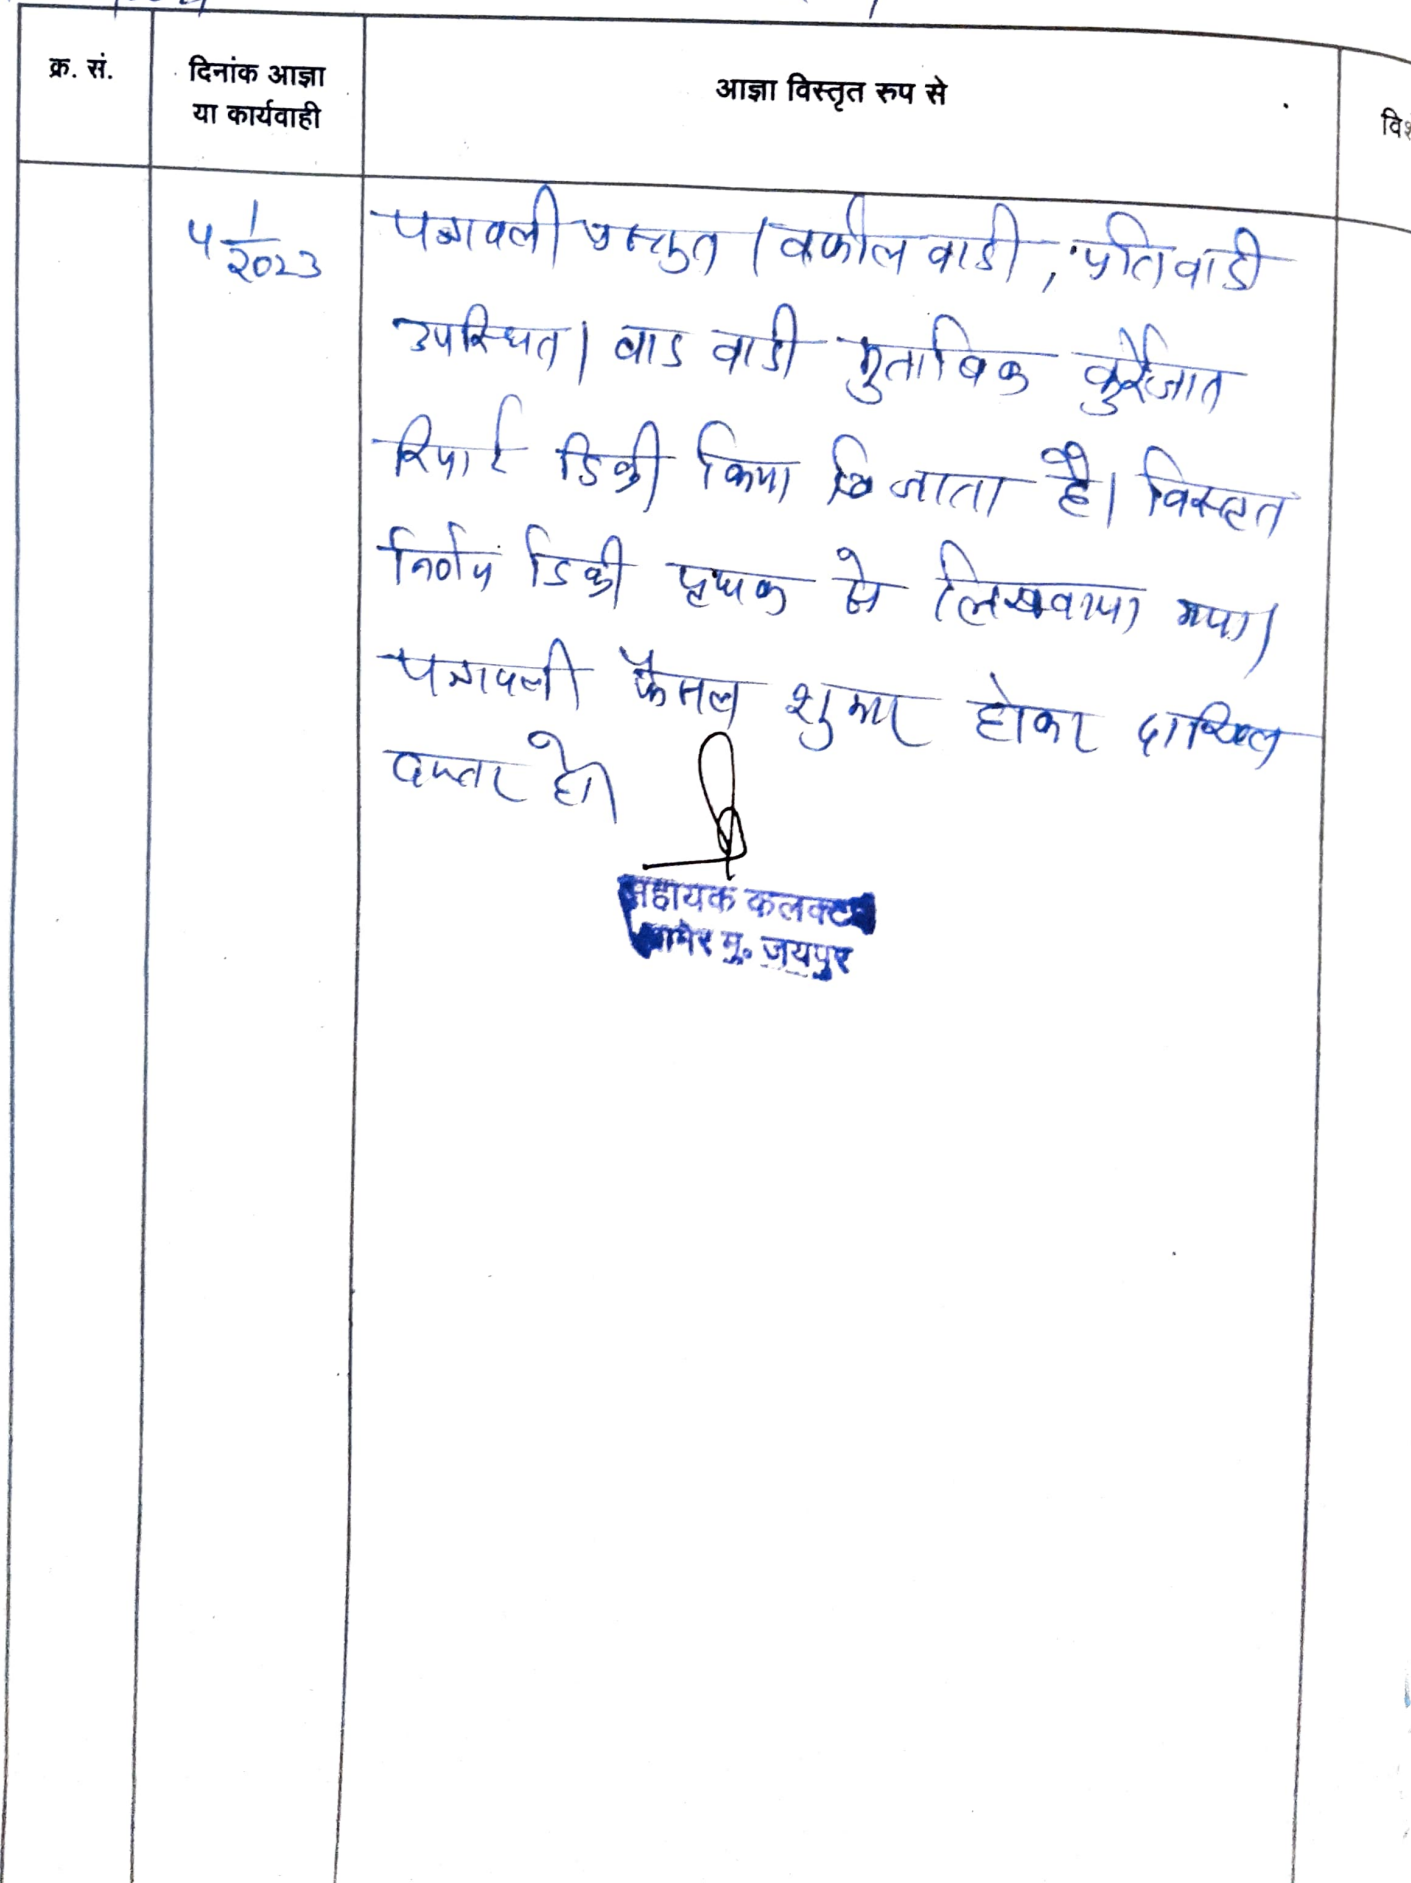 क्र. सं.
दिनांक आज्ञा
या कार्यवाही
आज्ञा विस्तृत रुप से
4 1/2023
पत्रावली प्रस्तुत। वकील वादी, प्रतिवादी
उपस्थित। वाद वादी मुताबिक कुर्रेजात
रिपोर्ट डिक्री किया जाता है। विस्तृत
निर्णय डिक्री पृथक से लिखवाया गया।
पत्रावली फैसल शुमार होकर दाखिल
दफ्तर हो।
सहायक कलक्टर
आमेर मु. जयपुर